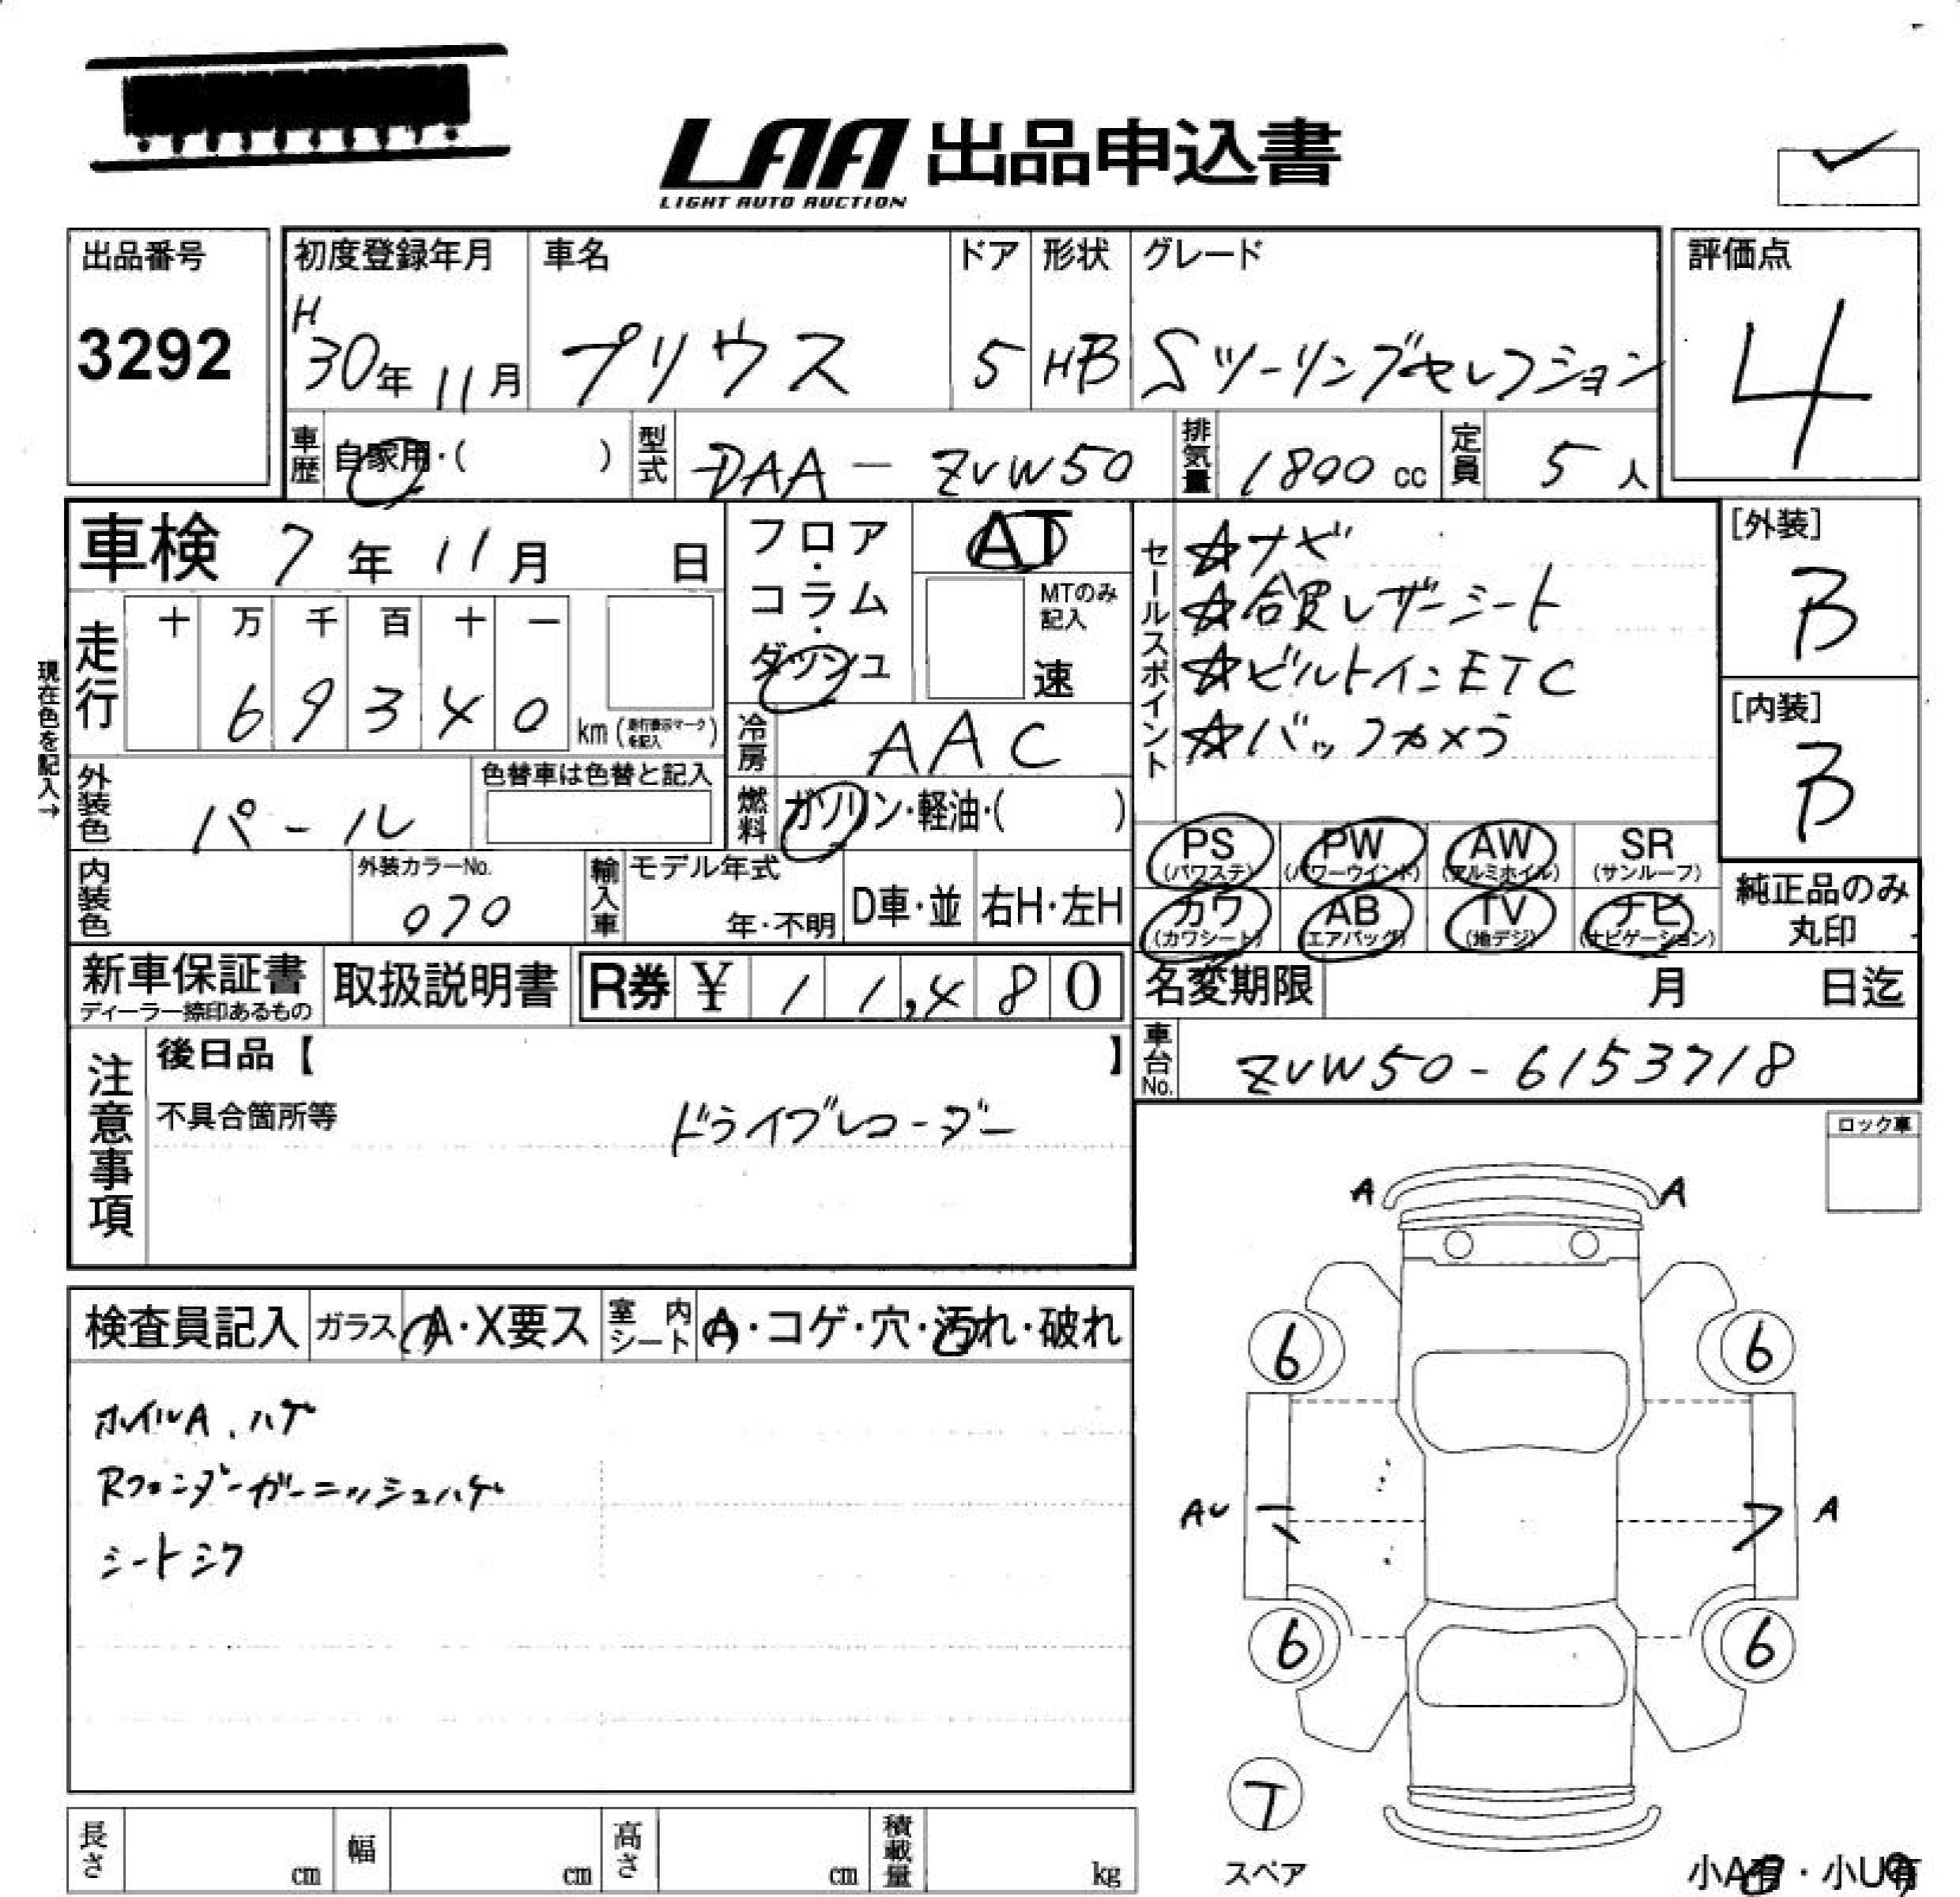 LAA 出品申込書
LIGHT AUTO AUCTION
出品番号
3292
初度登録年月 車名 ドア 形状 グレード
H30年11月 プリウス 5 HB Sツーリングセレクション
評価点
4
車歴 自家用・( ) 型式 DAA-ZVW50 排気量 1800cc 定員 5人
車検 7年11月 日
フロア・コラム・ダッシュ
AT
MTのみ記入
速
現在色を記入→
走行 十 万 千 百 十 一
69340 km (走行表示マークを記入)
冷房 AAC
燃料 ガソリン・軽油・( )
外装色 パール
色替車は色替と記入
内装色
外装カラーNo.
070
輸入車 モデル年式
年・不明 D車・並 右H・左H
セールスポイント
☆ナビ
☆合皮レザーシート
☆ビルトインETC
☆バックカメラ
[外装]
B
[内装]
B
PS (パワステ) PW (パワーウインド) AW (アルミホイル) SR (サンルーフ)
カワ (カワシート) AB (エアバッグ) TV (地デジ) ナビ (ナビゲーション)
純正品のみ
丸印
新車保証書
ディーラー捺印あるもの
取扱説明書
R券 ¥11,480
名変期限 月 日迄
車台No. ZVW50-6153718
注意事項
後日品【 】
不具合箇所等 ドライブレコーダー
ロック車
検査員記入 ガラス A・X要ス 室内シート A・コゲ・穴・汚れ・破れ
ホイルA、ハゲ
Rフェンダーガーニッシュハゲ
シートシワ
A A
6 6
AU A
6 6
T
スペア
小A有・小U有
長さ cm 幅 cm 高さ cm 積載量 kg